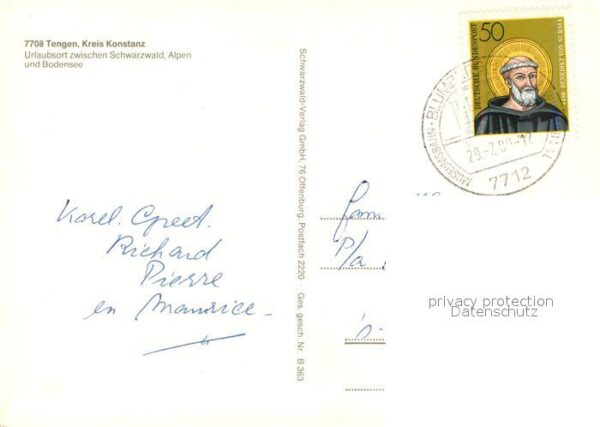 7708 Tengen, Kreis Konstanz
Urlaubsort zwischen Schwarzwald, Alpen
und Bodensee
Schwarzwald-Verlag GmbH, 76 Offenburg, Postfach 2220 · Ges. gesch. Nr. B 363
50
DEUTSCHE BUNDESPOST
BENEDIKT VON NURSIA
MUSEUMSBAHN · BLUMB
7712
Karel. Greet.
Richard
Pierre
en Maurice
Fam
P/a
privacy protection
Datenschutz